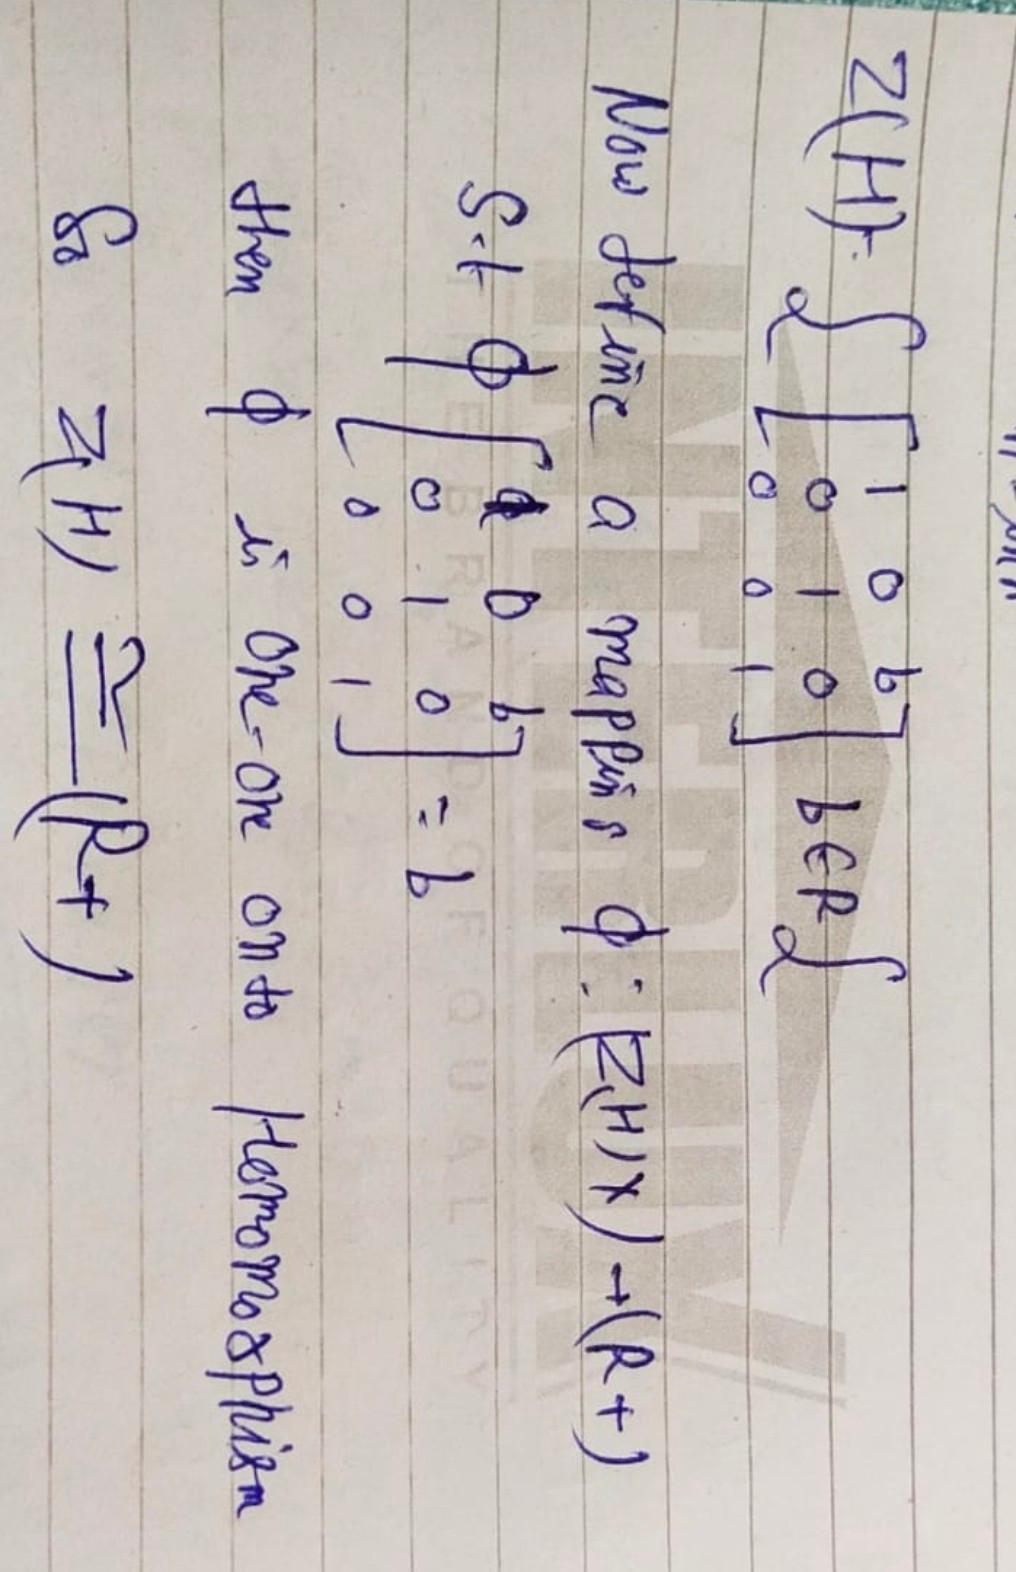 Z(H)= { [ 1 0 b
0 1 0
0 0 1 ] b∈R }
Now define a mapping ϕ : (Z(H) X) → (R +)
S.t ϕ [ 1 0 b
0 1 0
0 0 1 ] = b
then ϕ is one-one onto Homomorphism
So Z(H) ≅ (R +)